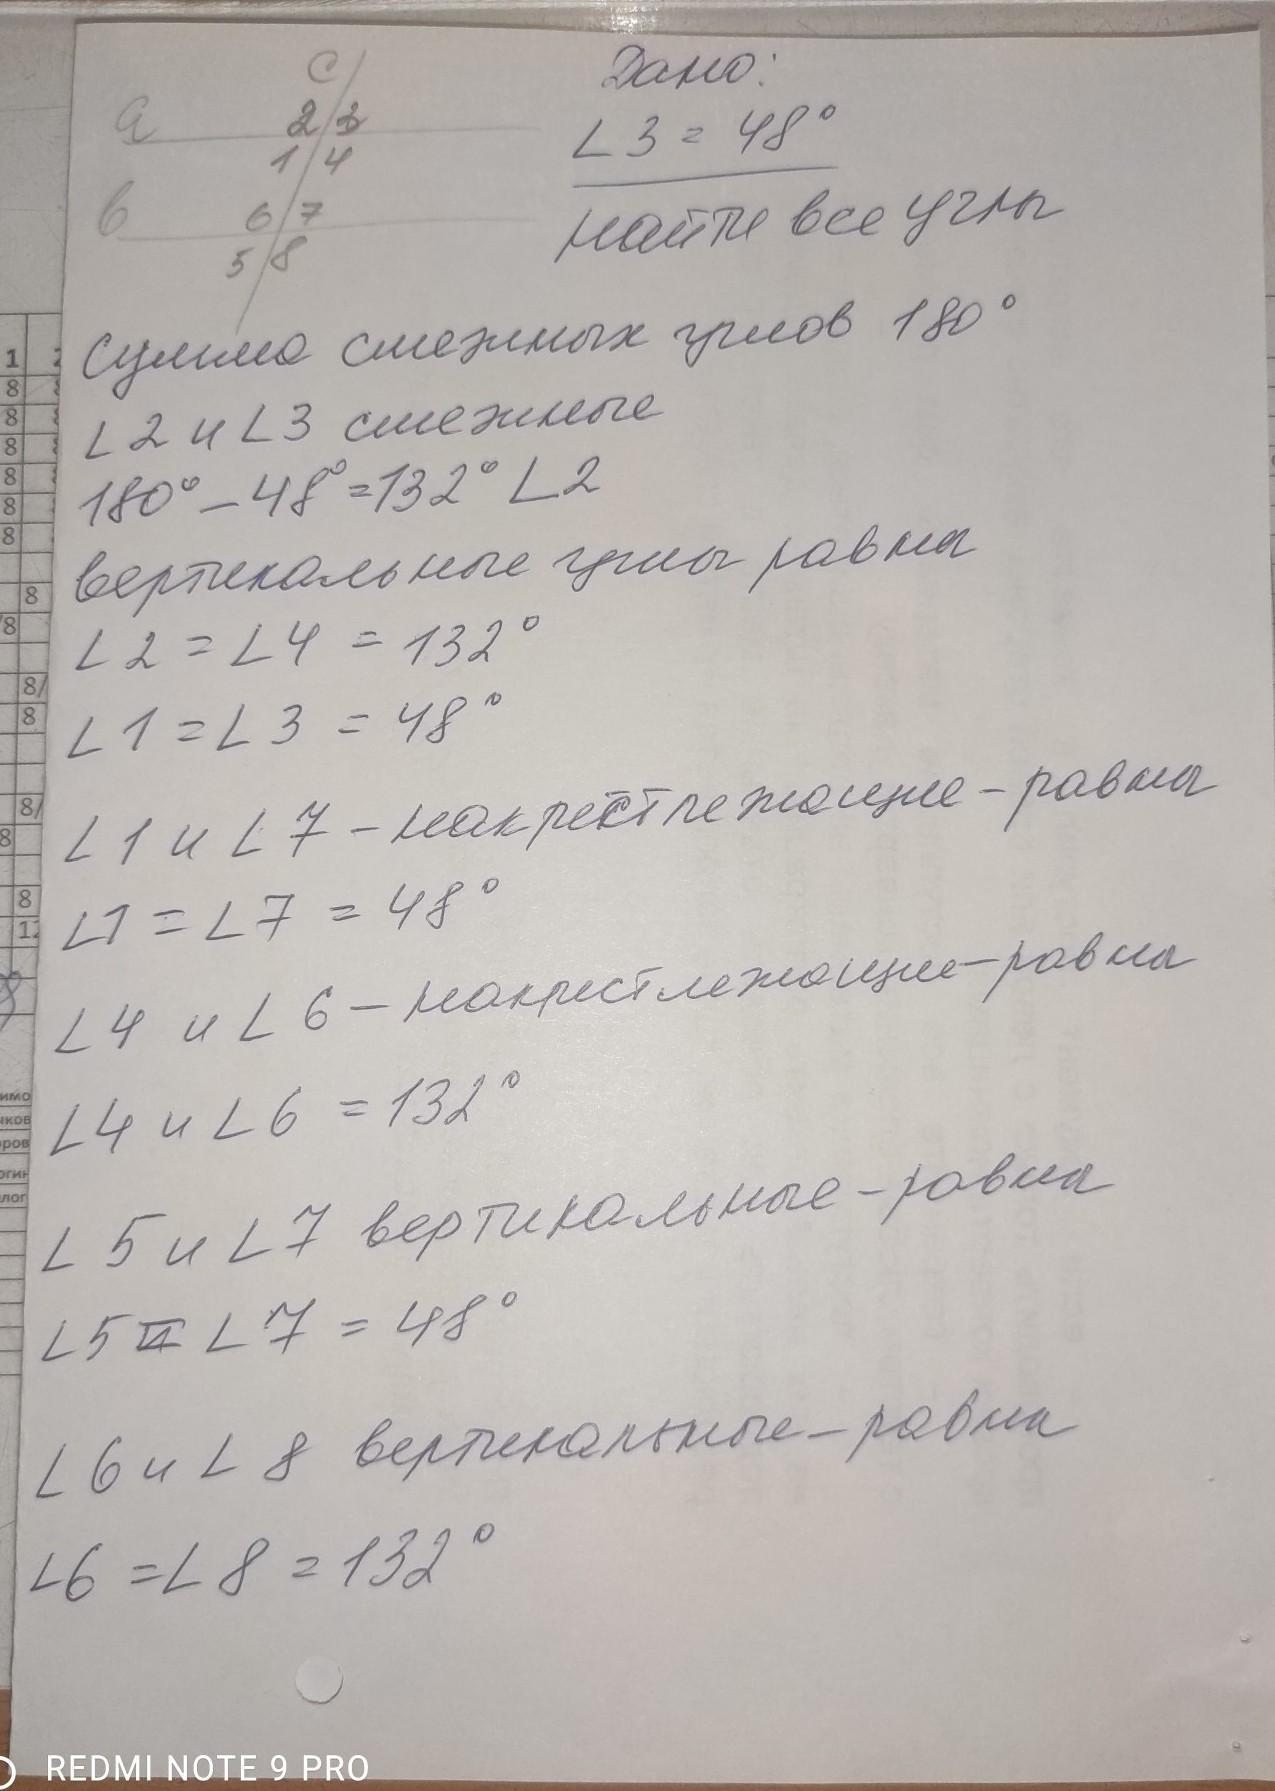 с
а
2 3
1 4
в
6 7
5 8
Дано:
∠3 = 48°
Найти все углы
Сумма смежных углов 180°
∠2 и ∠3 смежные
180° – 48° = 132° ∠2
вертикальные углы равны
∠2 = ∠4 = 132°
∠1 = ∠3 = 48°
∠1 и ∠7 – накрестлежащие – равны
∠1 = ∠7 = 48°
∠4 и ∠6 – накрестлежащие – равны
∠4 и ∠6 = 132°
∠5 и ∠7 вертикальные – равны
∠5 = ∠7 = 48°
∠6 и ∠8 вертикальные – равны
∠6 = ∠8 = 132°
1
8
8
8
8
8
8
8
/8
8/
8
8/
8
8
имо
чков
оров
огин
лог
REDMI NOTE 9 PRO